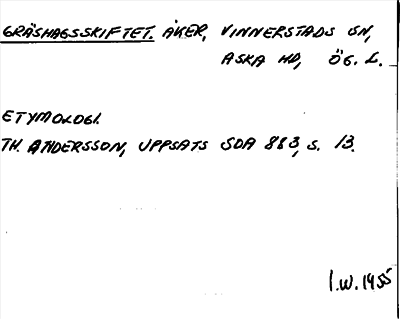 GRÄSHAGSSKIFTET. ÅKER, VINNERSTADS SN,
ASKA HD, ÖG. L.
ETYMOLOGI.
TH. ANDERSSON, UPPSATS SOA 863, S. 13.
I.W. 1955